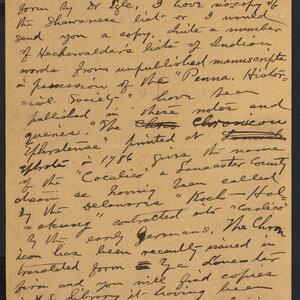 form by Dr Egle, I have no copy of
the Shawanese list or I would
send you a copy. Quite a number
of Heckewelder's lists of Indian
words from unpublished manuscripts
in possession of the "Penna. Histor-
ical Society" have been
published in these notes and
queries. The Chronicon
Ephratense" printed at
Ephrata in 1786 gives the name
of the "Cocalico" a Lancaster County
stream as having been called
by the Delawares "Koch-Hal-
ekung" contracted into "Cocalico"
by the early Germans. The Chron-
icon has been recently issued in
translated form by a Lancaster
firm and you will find copies
in U.S. library it having been